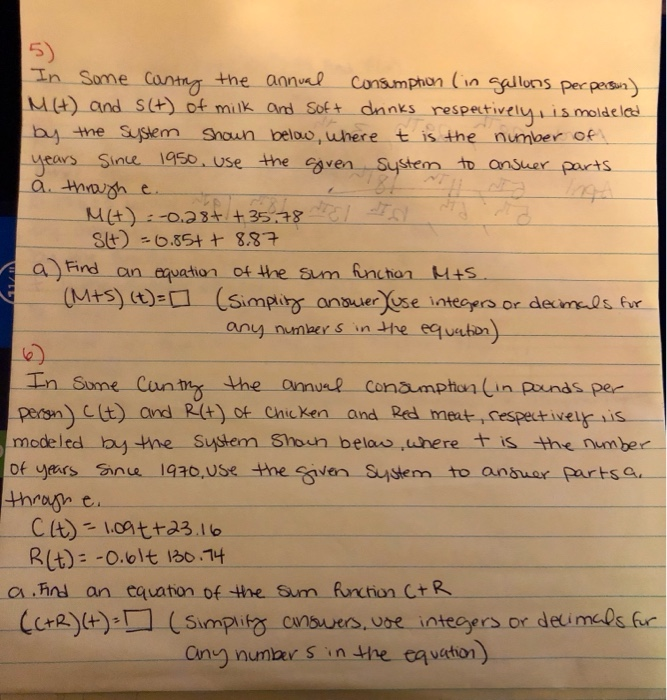 5)
In Some Cantry the annual Consumption (in gallons per person)
M(t) and S(t) of milk and Soft drinks respectively, is moldeled
by the System Shown below, where t is the number of
years Since 1950. Use the given System to answer parts
a. through e.
M(t) = -0.28t + 35.78
S(t) = 0.85t + 8.87
a) Find an equation of the sum function M+S.
(M+S)(t)=□ (Simplify answer)(Use integers or decimals for
any numbers in the equation)
6)
In Some Cuntry the annual consumption (in pounds per
person) C(t) and R(t) of Chicken and Red meat, respectively, is
modeled by the System Shown below, where t is the number
Of years Since 1970, Use the given System to answer parts a.
through e.
C(t) = 1.09t+23.16
R(t) = -0.61t 130.74
a. Find an equation of the Sum function C+R
(C+R)(t)=□ (Simplify answers, use integers or decimals for
any numbers in the equation)